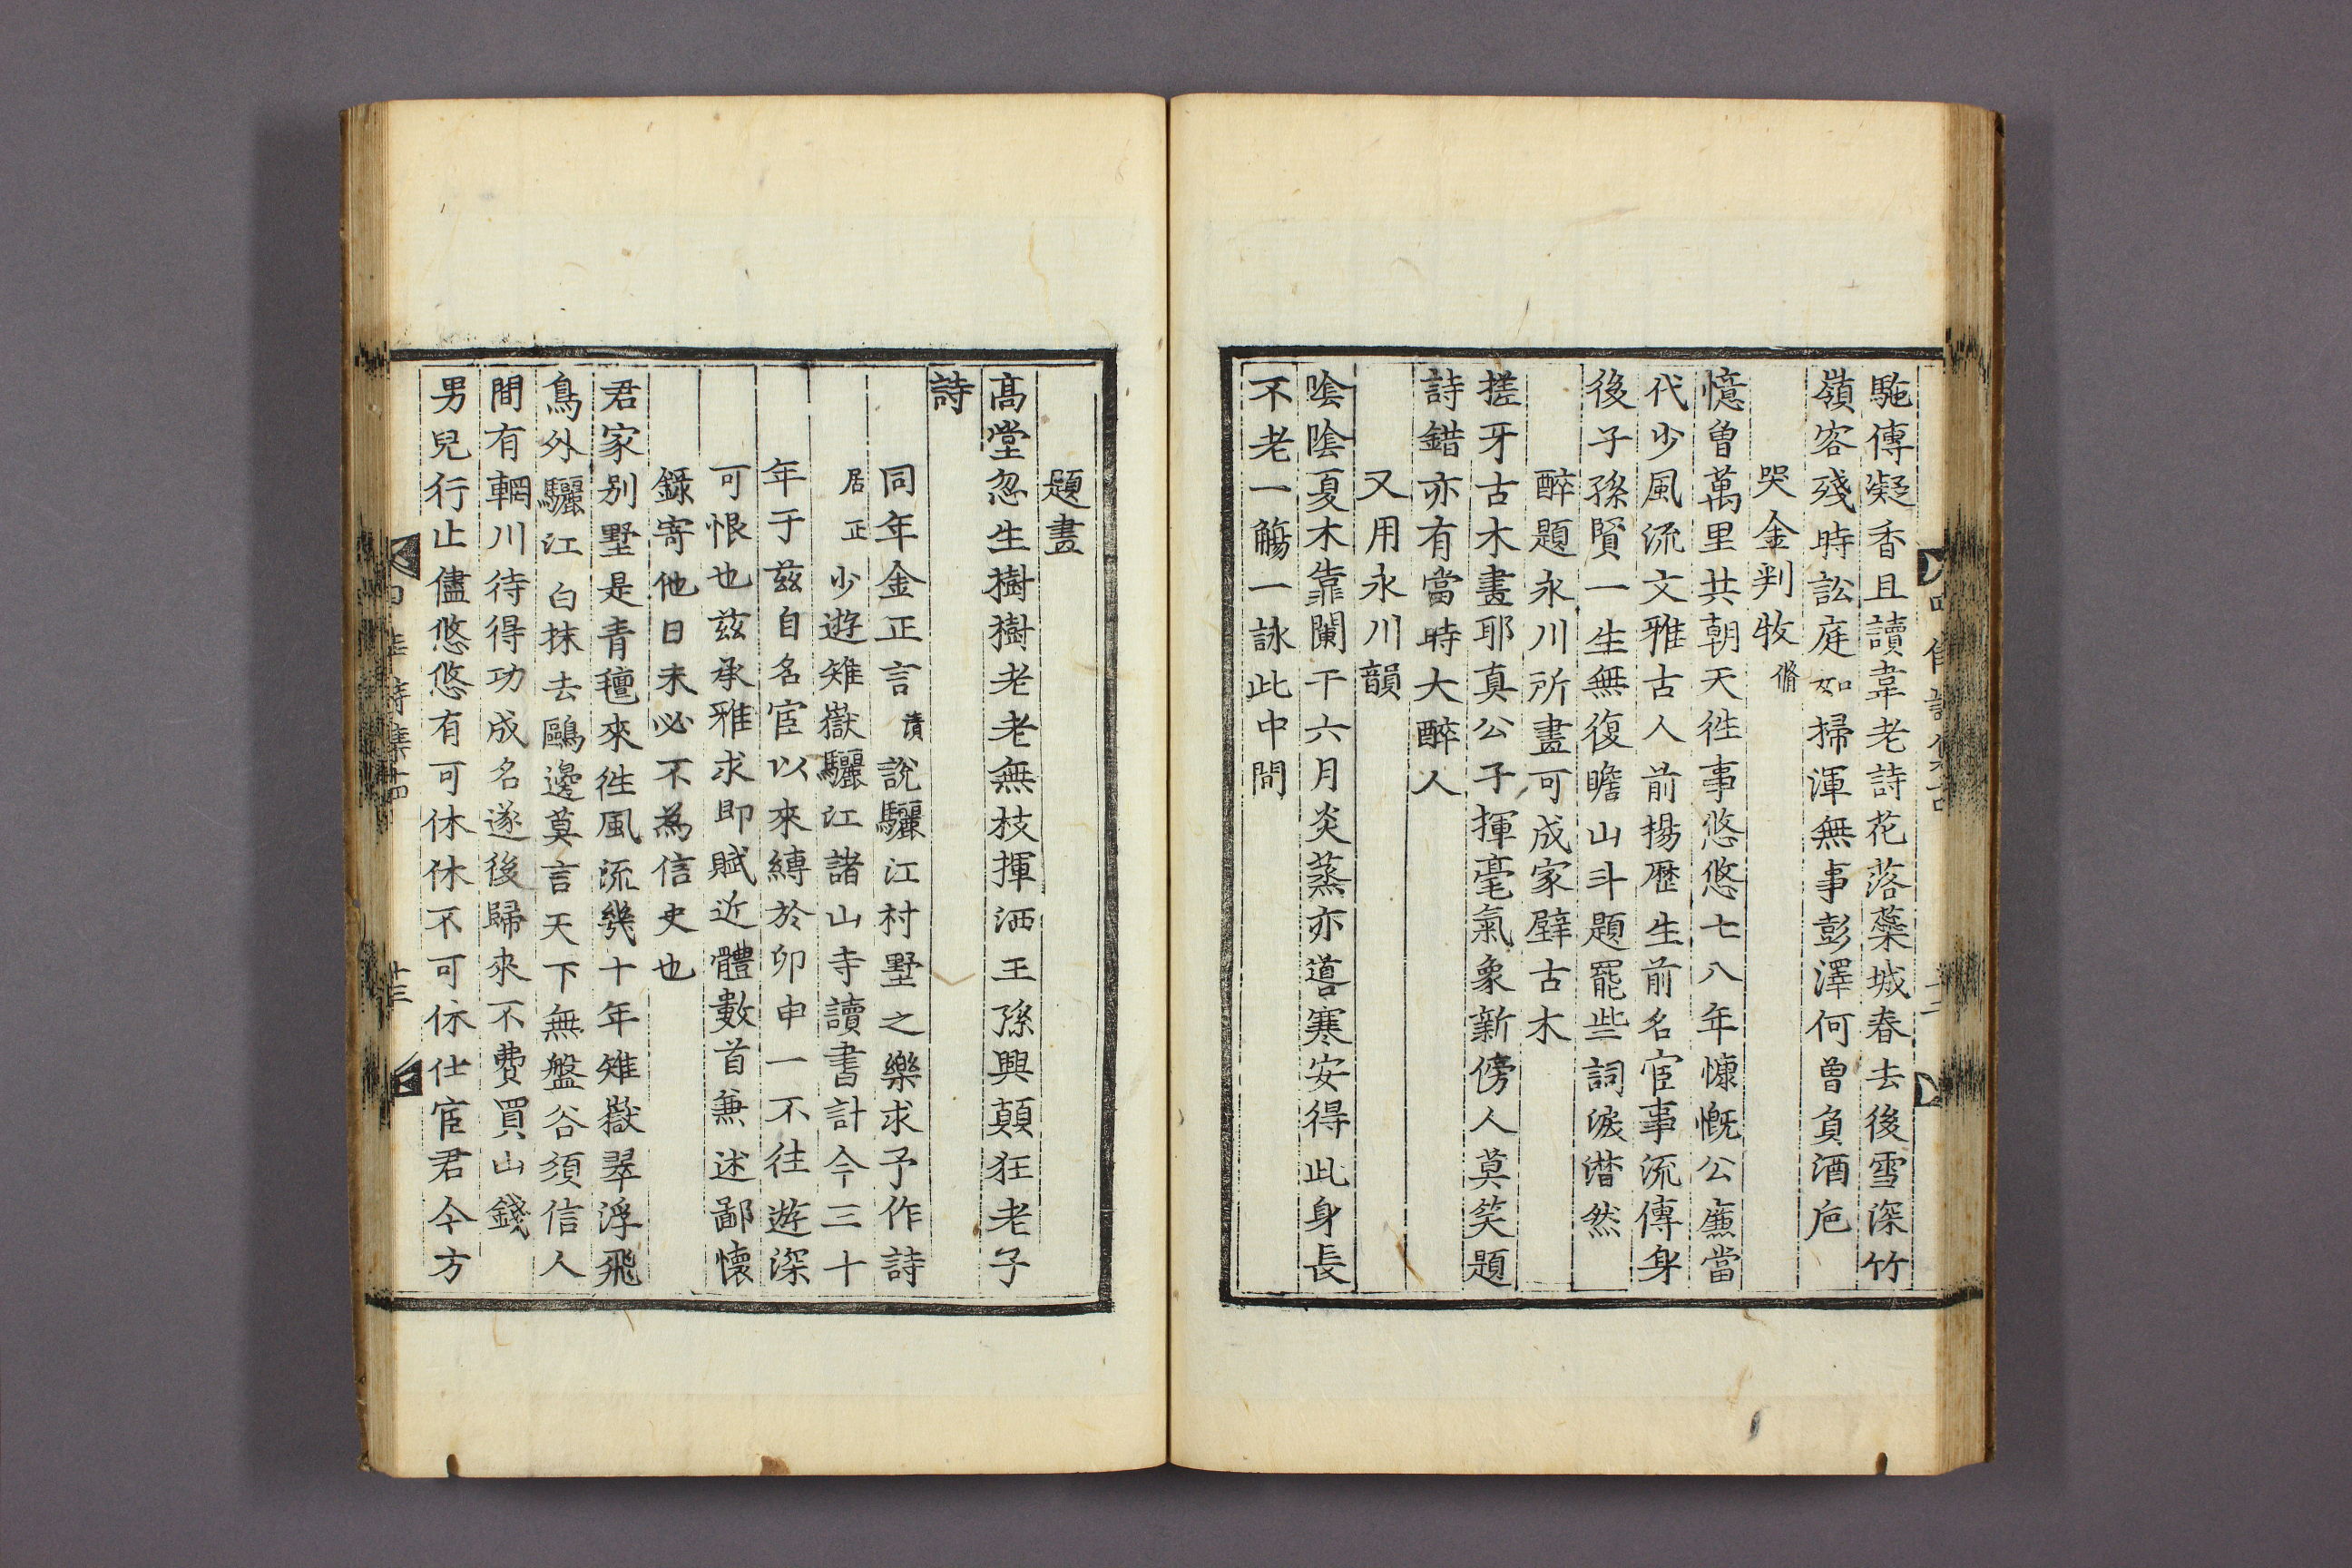 馳傳凝香且讀韋老詩花落蘂城春去後雪深竹
嶺客殘時訟庭如掃渾無事彭澤何曾負酒巵
哭金判牧脩
憶曾萬里共朝天徃事悠悠七八年慷慨公廉當
代少風流文雅古人前揚歷生前名宦事流傳身
後子孫賢一生無復瞻山斗題罷些詞淚潸然
醉題永川所畫可成家壁古木
搓牙古木畫耶真公子揮毫氣象新傍人莫笑題
詩錯亦有當時大醉人
又用永川韻
陰陰夏木靠闌干六月炎蒸亦噵寒安得此身長
不老一觴一詠此中間
題畫
高堂忽生樹樹老老無枝揮洒王孫興顛狂老子
詩
同年金正言漬說驪江村墅之樂求予作詩
居正少遊雉嶽驪江諸山寺讀書計今三十
年于茲自名宦以來縛於卯申一不往遊深
可恨也茲承雅求即賦近體數首兼述鄙懷
錄寄他日未必不為信史也
君家別墅是青氊來徃風流幾十年雉嶽翠浮飛
鳥外驪江白抹去鷗邊莫言天下無盤谷須信人
間有輞川待得功成名遂後歸來不費買山錢
男兒行止儘悠悠有可休休不可休仕宦君今方